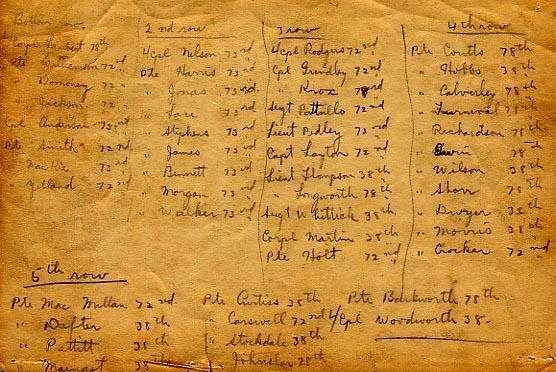 Bottom row.
Corpl Lambert 78th
Pte Williamson 72nd
" Domoney 72
" Jackson 72
Cpl Anderson 73rd
Pte Smith 72nd
" Mackie 73rd
" Zelland 72nd
2nd row
L/Cpl Nelson 73rd
Pte Harris 73rd
" Jonas 73rd
" Fare 73rd
" Stephens 73rd
" James 73rd
" Bennett 73rd
" Morgan 73rd
" Walker 73rd
3 row
L/Cpl Rodgers 72nd
Cpl Grundby 72nd
" Knox 78
Sergt Pattullo 72nd
Lieut Pedley 73rd
Capt Layton 72nd
Lieut Thompson 38th
" Longworth 78th
Sergt Whittick 38th
Corpl Martin 38th
Pte Holt 72nd
4th row
Pte Coutts 78th
" Hobbs 38th
" Calverley 78th
" Furnival 78th
" Richardson 78th
" Erwin 78th
" Wilson 38th
" Shaw 78th
" Dwyer 38th
" Morris 38th
" Crocker 72nd
5th row
Pte Mac Millan 72nd
" Dafter 38th
" Pettitt 38th
" 38th
Pte Curtiss 38th
" Carswell 72nd
" Stockdale 38th
" Johnston 78th
Pte Barkworth 78th
L/Cpl Woodworth 38.